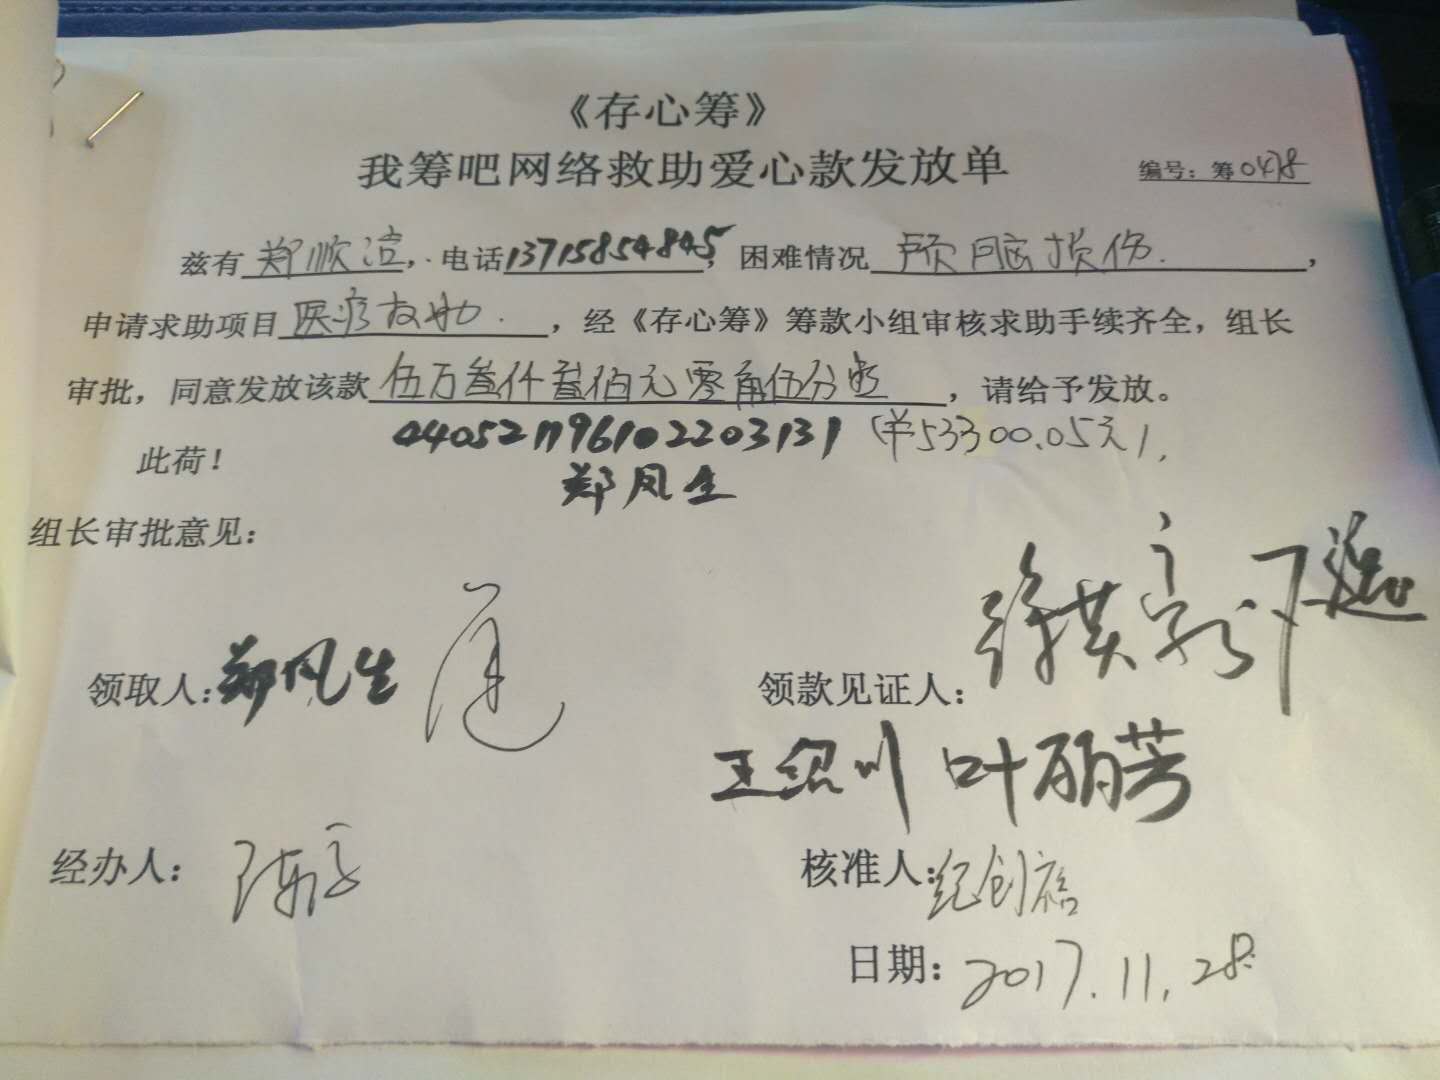 《存心筹》
我筹吧网络救助爱心款发放单
编号：筹0478
兹有郑顺洁，电话13715854845，困难情况 颅脑损伤.，
申请求助项目医疗救助.，经《存心筹》筹款小组审核求助手续齐全，组长
审批，同意发放该款伍万叁仟叁佰元零角伍分，请给予发放。
440521196102203131 (￥53300.05元),
此荷！
郑风生
组长审批意见：
领取人：郑风生
领款见证人：
王绍川 叶丽芳
经办人：
核准人：纪创
日期：2017.11.28.